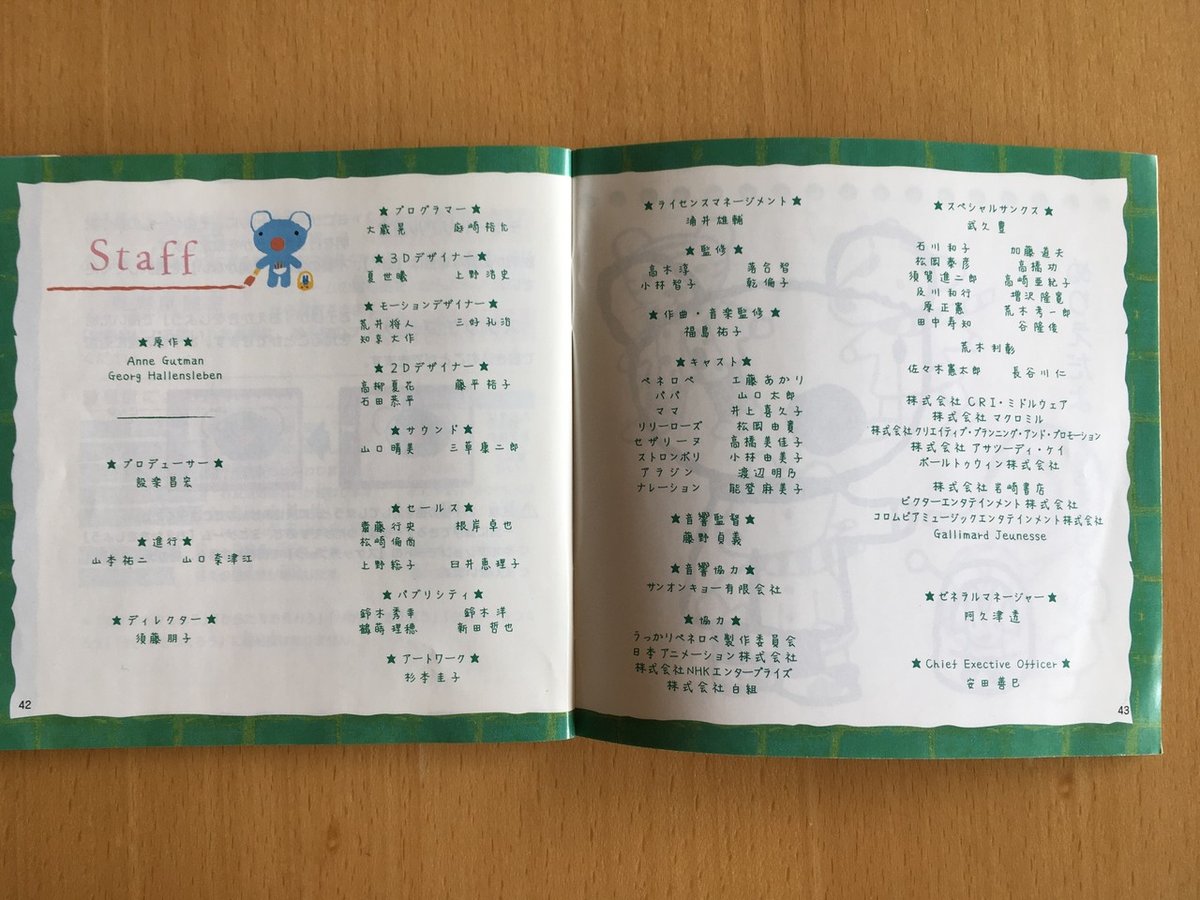 Staff
★原作★
Anne Gutman
Georg Hallensleben
★プロデューサー★
設楽昌宏
★進行★
山本祐二 山口奈津江
★ディレクター★
須藤朋子
42
★プログラマー★
大蔵晃
★3Dデザイナー★
夏世曦 上野浩史
★モーションデザイナー★
荒井将人 三好礼治
知京大作
★2Dデザイナー★
高柳夏花 藤平裕子
石田恭平
★サウンド★
山口晴美 三草康二郎
★セールス★
齋藤行史 根岸卓也
松崎倫尚
上野総子 臼井恵理子
★パブリシティ★
鈴木秀幸 鈴木洋
鶴蒔理穂 新田哲也
★アートワーク★
杉本圭子
★ライセンスマネージメント★
涌井雄輔
★監修★
高木淳 落合智
小林智子 乾倫子
★作曲・音楽監修★
福島祐子
★キャスト★
ペネロペ 工藤あかり
パパ 山口太郎
ママ 井上喜久子
リリーローズ 松岡由貴
セザリーヌ 高橋美佳子
ストロンボリ 小林由美子
アラジン 渡辺明乃
ナレーション 能登麻美子
★音響監督★
藤野貞義
★音響協力★
サンオンキョー有限会社
★協力★
うっかりペネロペ製作委員会
日本アニメーション株式会社
株式会社NHKエンタープライズ
株式会社白組
★スペシャルサンクス★
武久豊
石川和子 加藤道夫
松岡泰彦 高橋功
須賀進二郎 高崎亜紀子
及川和行 増沢隆寛
原正憲 荒木秀一郎
田中寿知 谷隆俊
荒木利彰
佐々木憲太郎 長谷川仁
株式会社CRI・ミドルウェア
株式会社マクロミル
株式会社クリエイティブ・プランニング・アンド・プロモーション
株式会社アサツーディ・ケイ
ポールトゥウィン株式会社
株式会社岩崎書店
ビクターエンタテインメント株式会社
コロムビアミュージックエンタテインメント株式会社
Gallimard Jeunesse
★ゼネラルマネージャー★
阿久津透
★Chief Exective Officer★
安田善巳
43